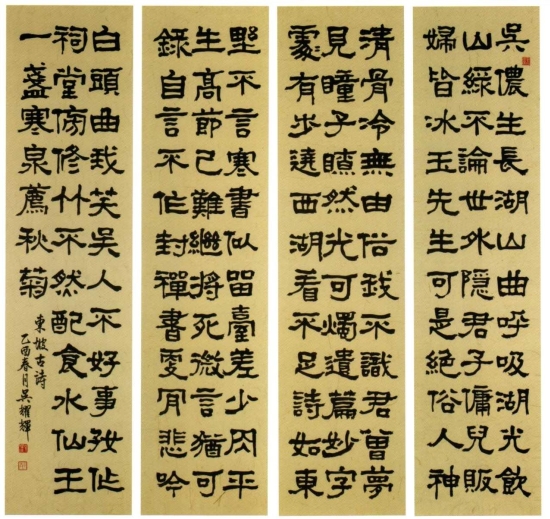 吳儂生長湖山曲呼吸湖光飲
山綠不論世外隱君子傭兒販
婦皆冰玉先生可是絕俗人神
清骨冷無由俗我不識君曾夢
見瞳子瞭然光可燭遺篇妙字
處有步遶西湖看不足詩如東
野不言寒書似留臺差少肉平
生高節已難繼將死微言猶可
錄自言不作封禪書更肎悲吟
白頭曲我笑吳人不好事好作
祠堂傍修竹不然配食水仙王
一盞寒泉薦秋菊
東坡古詩
乙酉春月吳耀輝